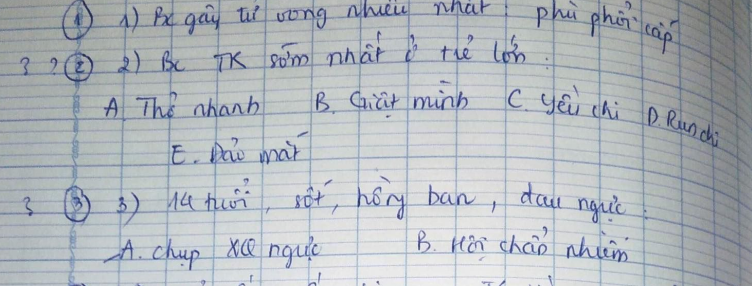 ① 1) Bc gây tử vong nhiều nhất: phù phổi cấp
? ? ② 2) Bc TK sớm nhất ở trẻ lớn:
A. Thở nhanh B. Giật mình C. yếu chi D. Run chi
E. Đảo mắt
? ③ 3) 14 tuổi, sốt, hồng ban, đau ngực:
A. chụp XQ ngực B. Hội chẩn nhiễm